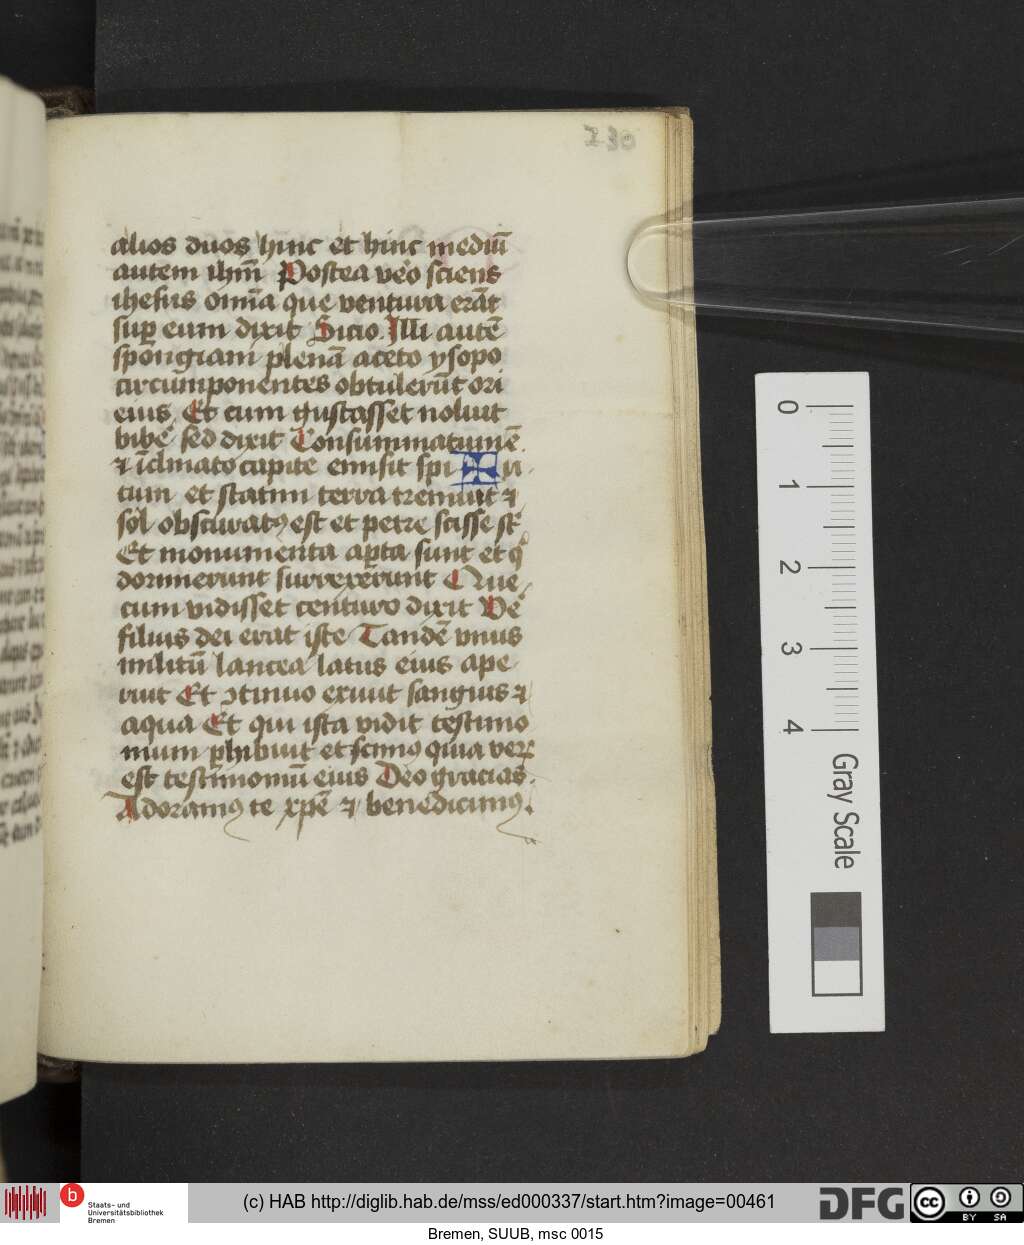 230
alios duos hinc et hinc mediū
autem ihm̄ Postea vēo sciens
ihesus om̄ia que ventura erāt
sup̱ eum dixit Sicio. Illi autē
spongiam plenā aceto ysopo
circūmponentes obtulerūt ori
eius Et cum gustasset noluit
bibē sed dixit Consummatum ē.
⁊ īclinato capite emisit spi ✠ ri
tum et statim terra tremuit ⁊
sol obscuratꝰ est et petre scisse st̄
Et monumenta aꝑta sunt et q̄
dormierunt surrexerunt Que
cum vidisset centurio dixit Vē
filius dei erat iste Tandē vnus
militū lancea latus eius ape
ruit Et ↄtinuo exiuit sanguis ⁊
aqua Et qui ista vidit testimo
nium ꝑhibuit et scimꝰ quia verꝝ
est testimoniū eius Deo gracias.
Adoramꝰ te xp̄e ⁊ benedicimꝰ.
0
1
2
3
4
Gray Scale
b
Staats- und
Universitätsbibliothek
Bremen
(c) HAB http://diglib.hab.de/mss/ed000337/start.htm?image=00461
DFG
cc
BY SA
Bremen, SUUB, msc 0015